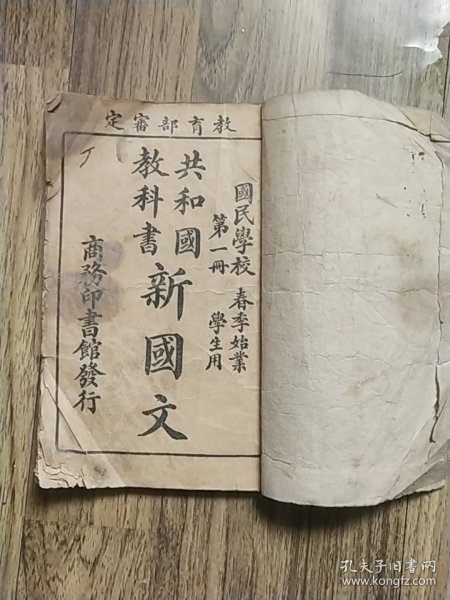 教育部審定
國民學校 春季始業
第一冊 學生用
共和國
教科書
新國文
商務印書館發行
孔夫子旧书网
www.kongfz.com